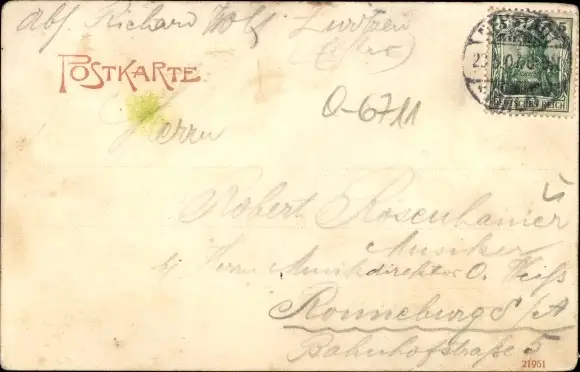 Abs. Richard Wolf
POSTKARTE.
O-6711
DEUTSCHES REICH
Herrn
Robert Rosenhainer
Musiker
b/ Herrn Musikdirektor O. Weiß
Ronneburg S/A
Bahnhofstraße 5
21951